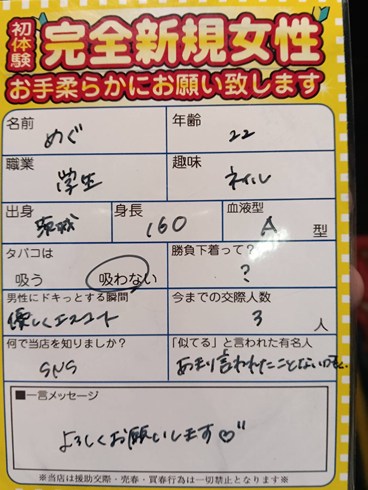 初体験
完全新規女性
お手柔らかにお願い致します
名前 めぐ
年齢 22
職業 学生
趣味 ネイル
出身 茨城
身長 160
血液型 A 型
タバコは
吸う 吸わない
勝負下着って?
?
男性にドキっとする瞬間
優しくエスコート
今までの交際人数
3 人
何で当店を知りましたか?
SNS
「似てる」と言われた有名人
あまり言われたことないかも、
■一言メッセージ
よろしくお願いします♡"
※当店は援助交際・売春・買春行為は一切禁止となります※